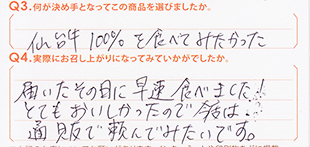 Q3.何が決め手となってこの商品を選びましたか。
仙台牛 100%を食べてみたかった
Q4.実際にお召し上がりになってみていかがでしたか。
届いたその日に早速食べました!
とてもおいしかったので今度は
通販で頼んでみたいです。